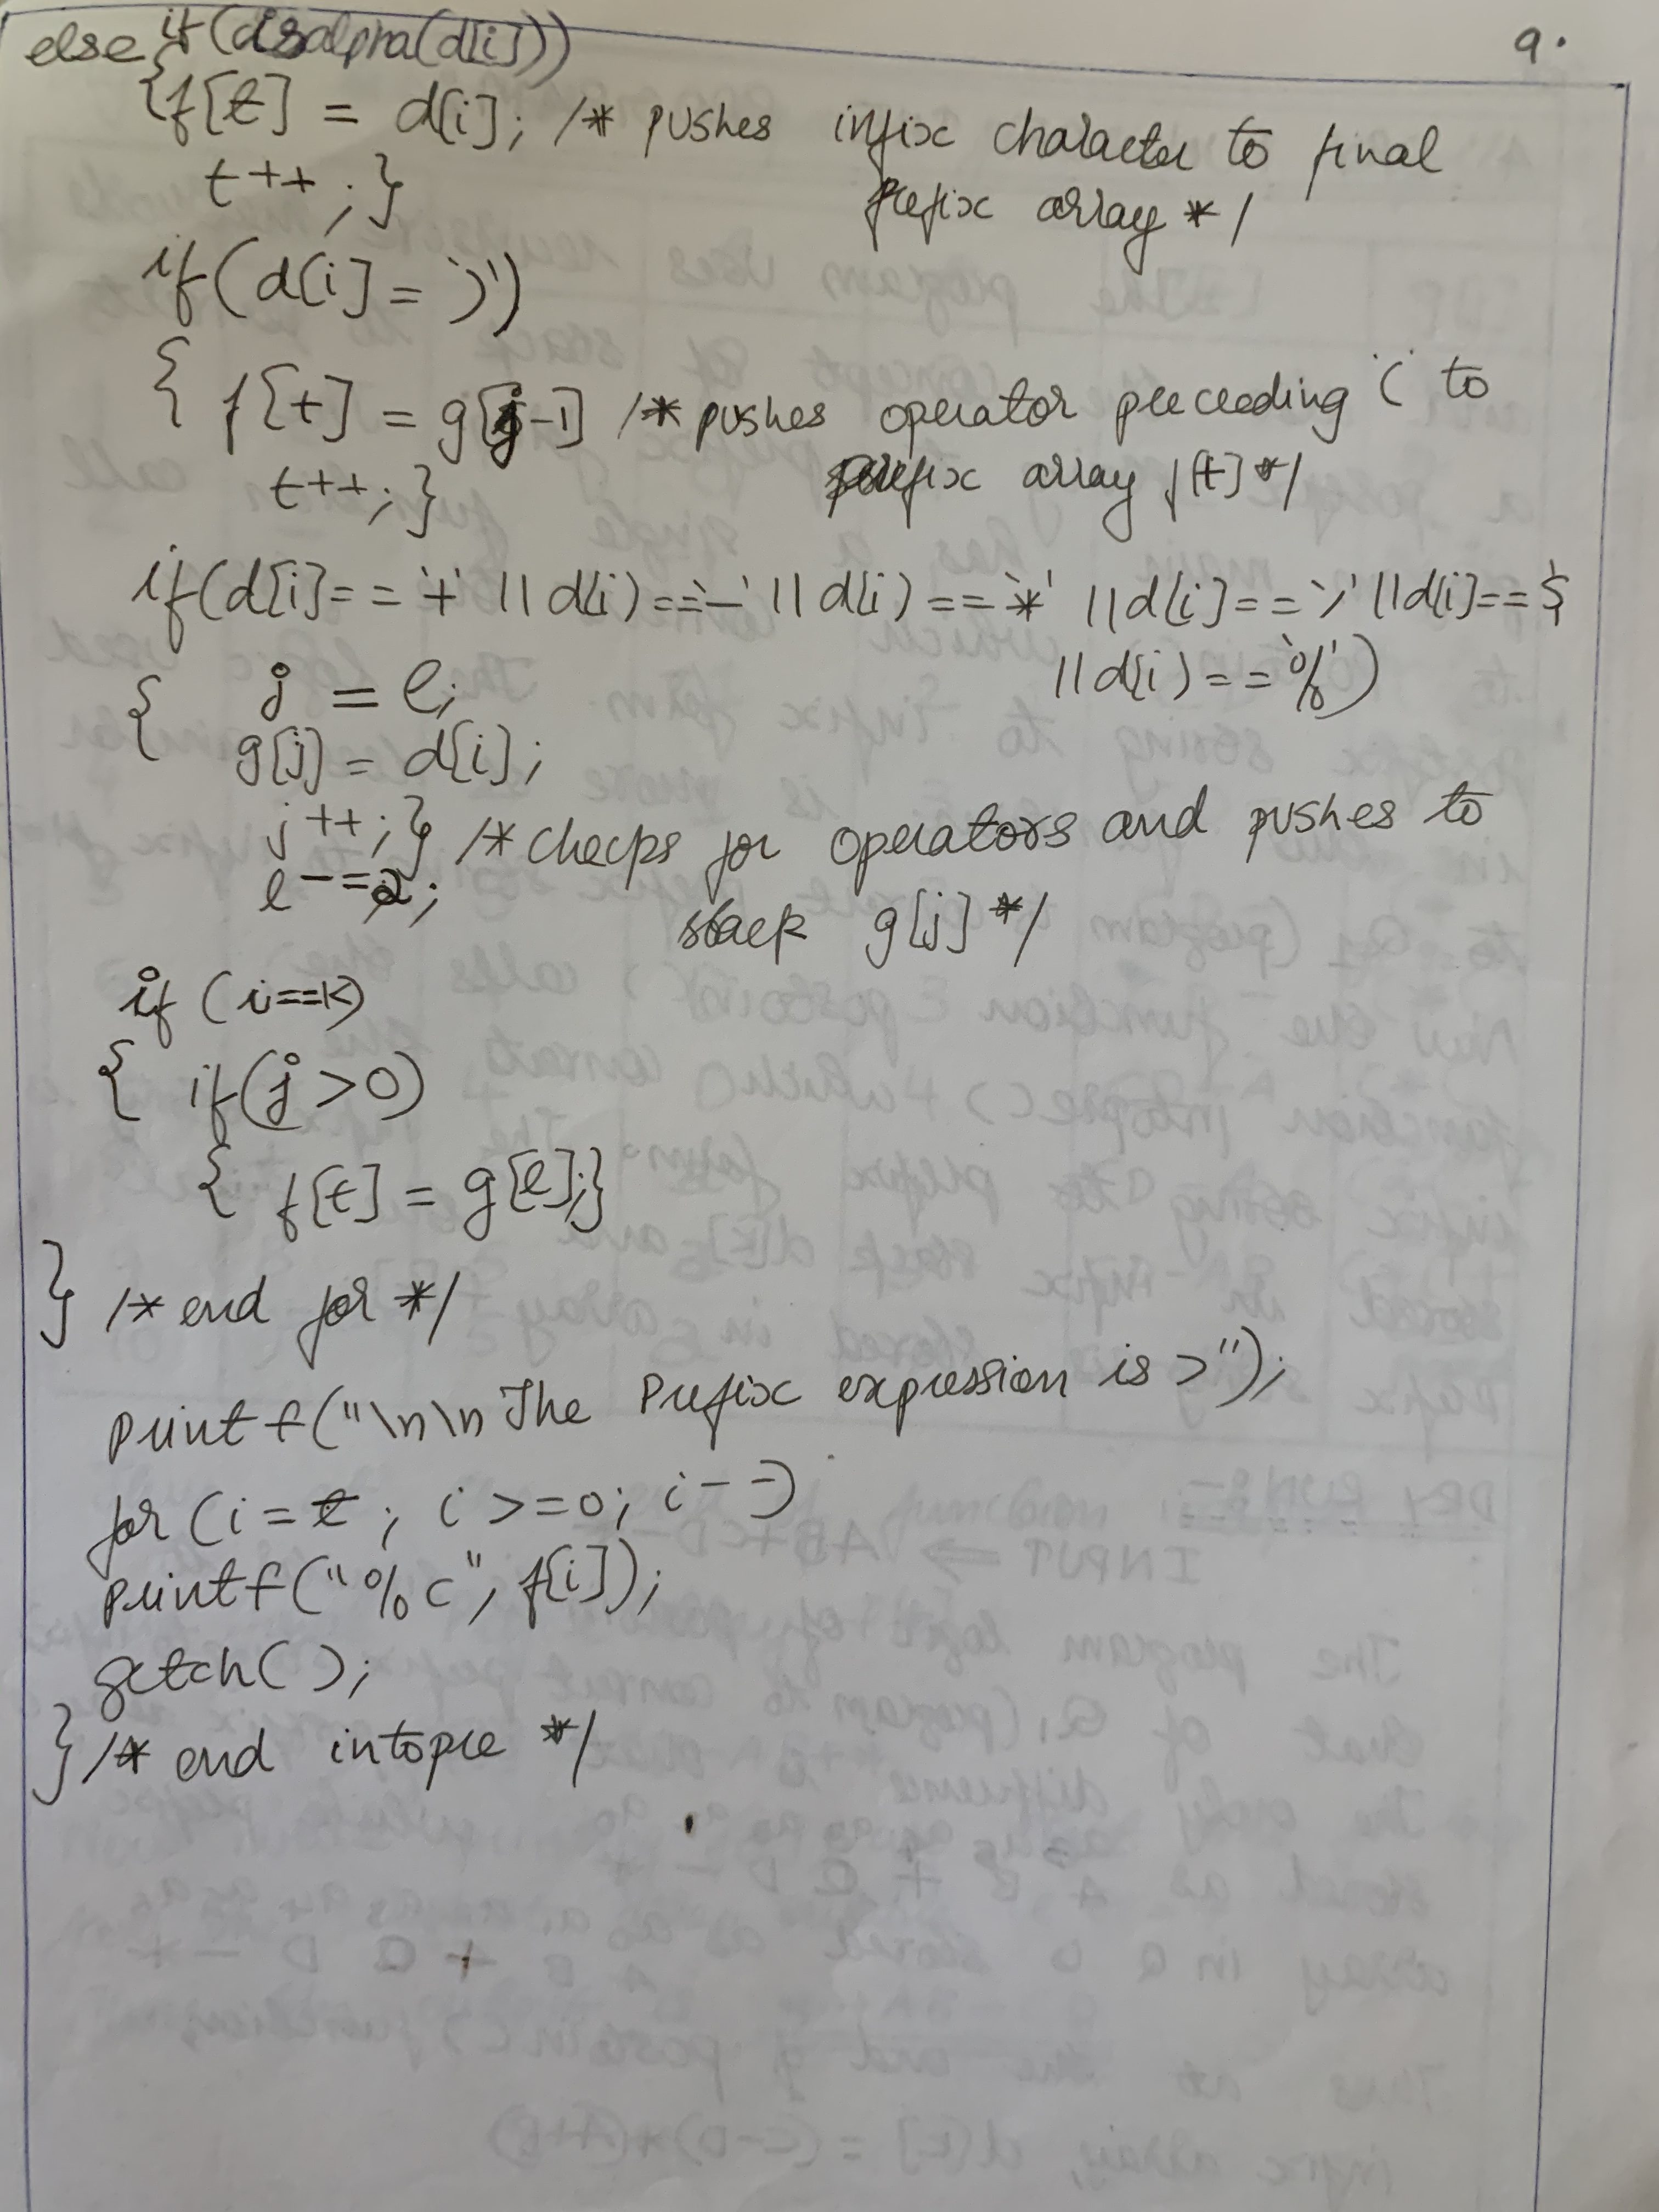 9.
else if(isalpha(d[i]))
{f[t] = d[i]; /* pushes infix character to final
t++;} prefix array */
if(d[i]= ')')
{ f[t] = g[j-1] /* pushes operator preceeding '(' to
t++;} prefix array f[t] */
if(d[i]== '+' || d[i) == '-' || d[i) == '*' || d[i]== '/' || d[i]== $
|| d[i) == '%')
{ j = l;
g[j] = d[i];
j++;} /* checks for operators and pushes to
l-=2; stack g[j] */
if (i==k)
{ if(j>0)
{ f[t] = g[l];}
} /* end for */
printf("\n\n The Prefix expression is >");
for (i = t; i >=0; i--)
printf("%c", f[i]);
getch();
} /* end intopre */